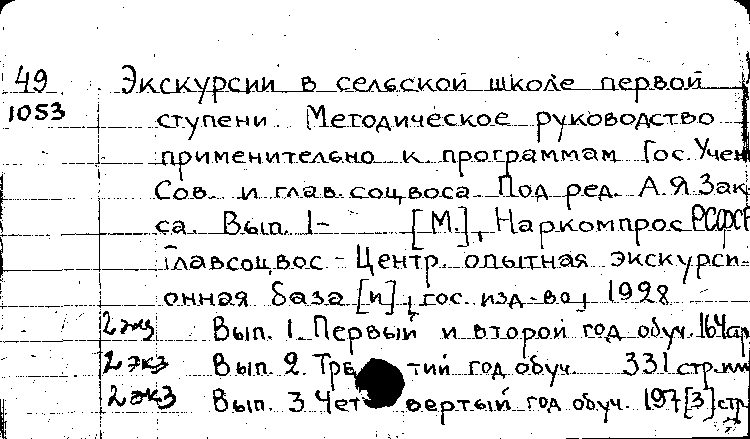 49 Экскурсии в сельской школе первой
1053 ступени. Методическое руководство
применительно к программам Гос. Учен
Сов. и глав. соцвоса. Под ред. А.Я. Зак
са. Вып. 1- [М.], Наркомпрос РСФСР
Главсоцвос - Центр. опытная экскурси-
онная база [и], гос. изд-во, 1928
2 экз Вып. 1. Первый и второй год обуч. 164
2 экз Вып. 2. Тре тий год обуч. 331 стр.
2 экз Вып. 3 Чет вертый год обуч. 197 [3] стр